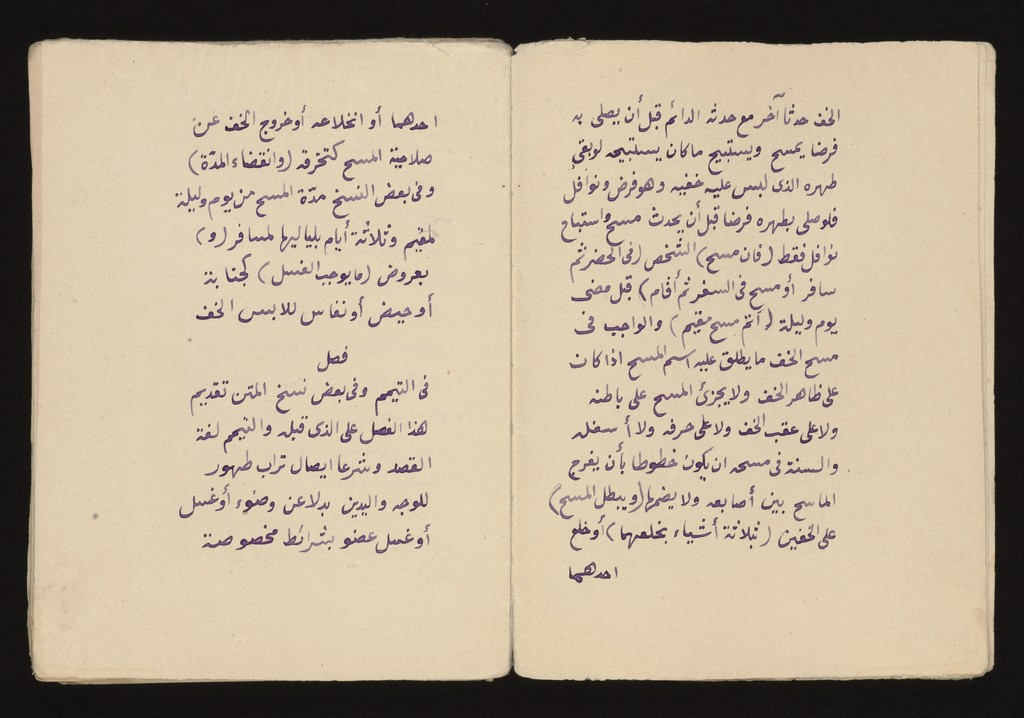 الخف حدثا آخر مع حدثه الدائم قبل أن يصلى به
فرضا يمسح ويستبيح ما كان يستبيحه لو بقى
طهره الذى لبس عليه خفيه وهو فرض ونوافل
فلو صلى بطهره فرضا قبل أن يحدث مسح واستباح
نوافل فقط (فان مسح) الشخص (فى الحضر ثم
سافر أو مسح فى السفر ثم أقام) قبل مضى
يوم وليلة (أتم مسح مقيم) والواجب فى
مسح الخف ما يطلق عليه اسم المسح اذا كان
على ظاهر الخف ولا يجزئ المسح على باطنه
ولا على عقب الخف ولا على حرفه ولا أسفله
والسنة فى مسحه ان يكون خطوطا بأن يفرج
الماسح بين أصابعه ولا يضمها (ويبطل المسح)
على الخفين (بثلاثة أشياء بخلعهما) أو خلع
احدهما
احدهما أو انخلاعه أو خروج الخف عن
صلاحية المسح كتخرقه (وانقضاء المدة)
وفى بعض النسخ مدّة المسح من يوم وليلة
لمقيم وثلاثة أيام بلياليها لمسافر (و)
بعروض (ما يوجب الغسل) كجنابة
أو حيض أو نفاس للابس الخف
فصل
فى التيمم وفى بعض نسخ المتن تقديم
هذا الفصل على الذى قبله والتيمم لغة
القصد وشرعا ايصال تراب طهور
للوجه واليدين بدلا عن وضوء أو غسل
أو غسل عضو بشرائط مخصوصة